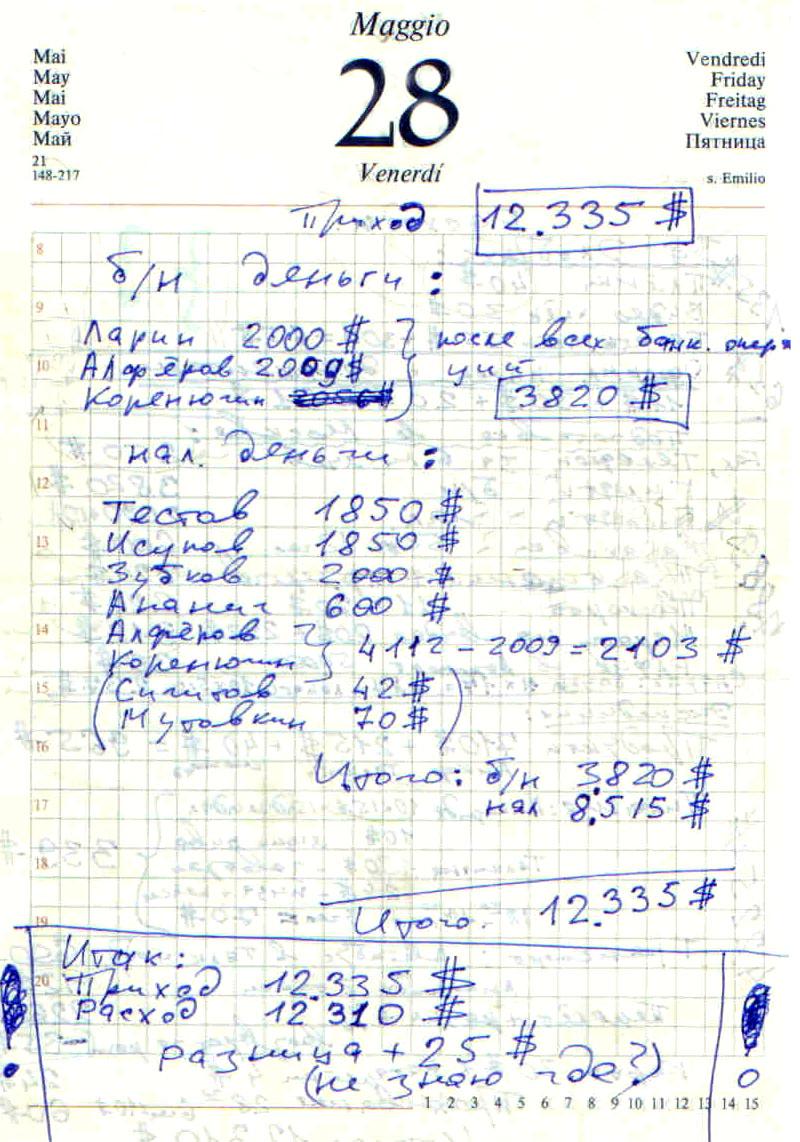 Maggio
Mai
May
Mai
Mayo
Май
21
148-217
28
Venerdí
Vendredi
Friday
Freitag
Viernes
Пятница
s. Emilio
Приход 12.335 $
8
б/н деньги:
9
Ларин 2000 $ } после всех банк. опера
10
Алфёров 2009$ ций
Коренюгин 3820 $
11
нал. деньги:
12
Тестов 1850 $
13
Исупов 1850 $
Зубков 2000 $
Ананич 600 $
14
Алфёров } 4112 – 2009 = 2103 $
Коренюгин
15
(Сигитов 42 $
Мутовкин 70 $)
16
Итого: б/н 3.820 $
17
нал 8.515 $
18
Итого: 12.335 $
19
Итак:
20
Приход 12.335 $
Расход 12 310 $
разница + 25 $
(не знаю где?)
1 2 3 4 5 6 7 8 9 10 11 12 13 14 15